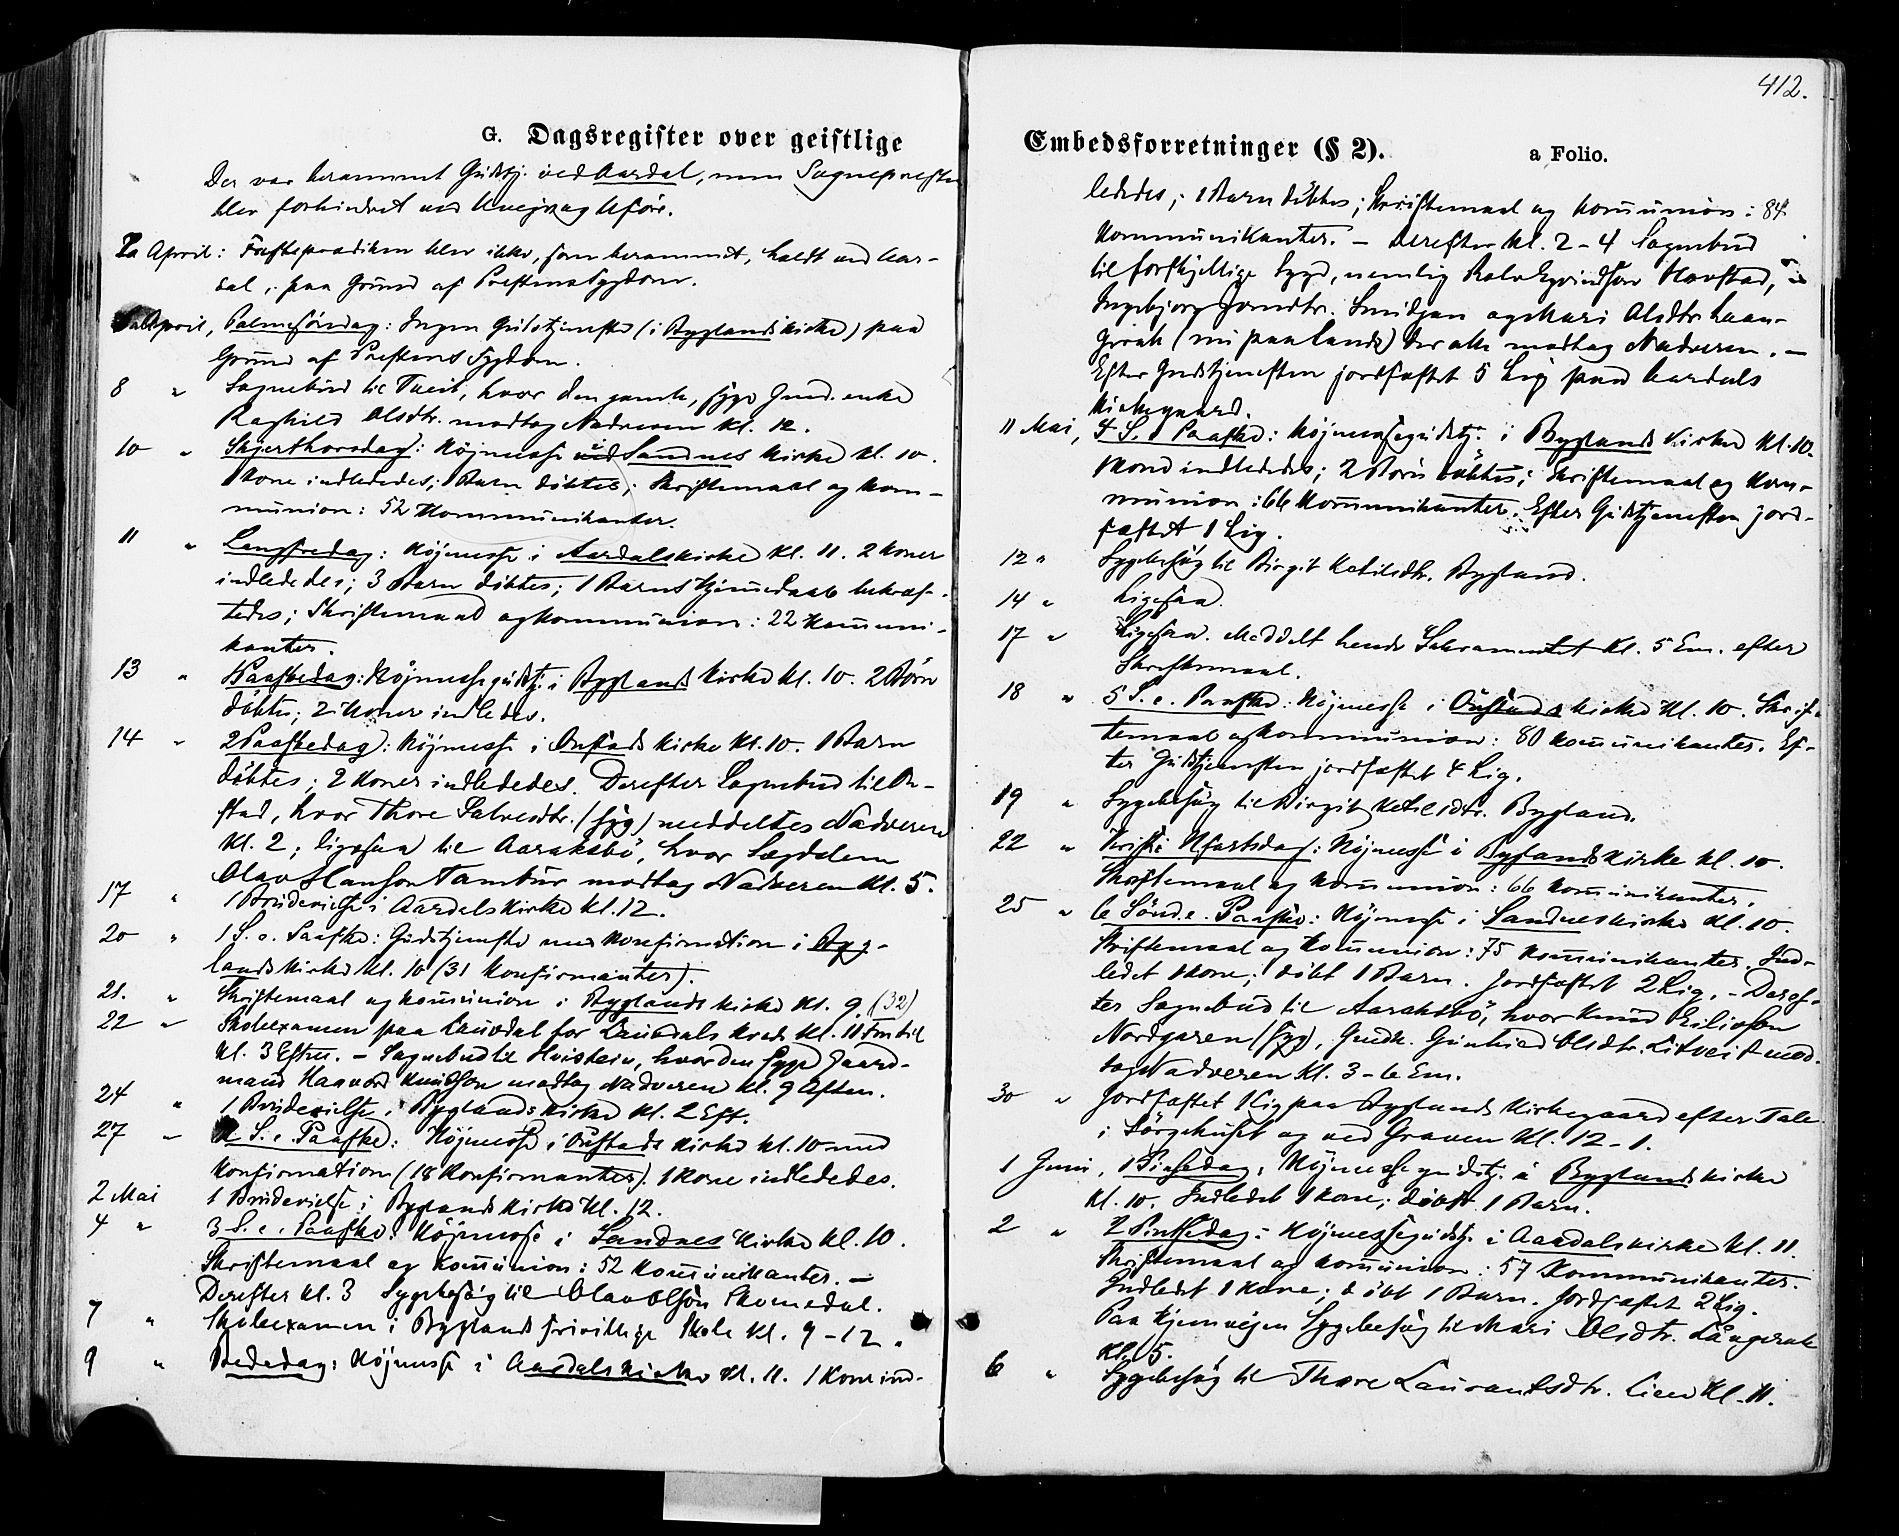 G. Dagsregister over geistlige
Der var berammet Gudstj. ved Aardal, men Sognepresten
blev forhindret ved Uvejr og Uføre.
2 April: Fasteprædiken blev ikke, som berammet, holdt ved Aar-
dal, paa Grund af Prestens Sygdom.
April, Palmesöndag: Ingen Gudstjeneste (i Byglands kirke) paa
Grund af Prestens Sygdom.
8 " Sognebud til Tveit, hvor den gamle, syge Gmd. enke
Raghild Olsdtr. modtog Nadveren Kl. 12.
10 " Skjærthorsdag: Höjmesse ved Sandnes Kirke Kl. 10.
1 Kone indlededes; 1 Barn döbtes; Skriftemaal og Kom-
munion: 52 Kommunikanter.
11 " Langfredag: Höjmesse i Aardals kirke Kl. 11. 2 Koner
indlededes; 3 Barn döbtes; 1 Barns Hjemmedaab bekræf-
tedes; Skriftemaal og Kommunion: 22 Kommuni-
kanter.
13 " 1 Paaskedag: Höjmessegudstj. i Byglands Kirke Kl. 10. 2 Börn
döbtes; 2 Koner indledes.
14 " 2 Paaskedag: Höjmesse i Önstads Kirke Kl. 10. 1 Barn
döbtes; 2 Koner indlededes. Derefter Sognebud til Ön-
stad, hvor Thore Salvesdtr. (syg) meddeltes Nadveren
Kl. 2; ligesaa til Aaraksbö, hvor Lægdslem
Olav Hansson Tambur modtog Nadveren Kl. 5.
17 " 1 Brudevielse i Aardals Kirke Kl. 12.
20 " 1 S. e. Paaske: Gudstjeneste med Konfirmation i Byg-
lands kirke Kl. 10 (31 Konfirmanter).
21. " Skriftemaal og Kommunion i Byglands kirke Kl. 9. (32)
22 " Skoleexamen paa Lauvdal for Lauvdals Kreds Kl. 11 Fm til
Kl. 3 Efterm. – Sognebud til Hvistein, hvor den syge Gaard-
mand Haavord Knudson modtog Nadveren Kl. 9 Aften.
24 " 1 Brudevielse i Byglands Kirke Kl. 2 Eft.
27 " 2 S. e. Paaske: Höjmesse i Önstads Kirke Kl. 10 med
Konfirmation (18 Konfirmanter). 1 Kone indlededes.
2 Mai 1 Brudevielse i Byglands Kirke Kl. 12.
4 " 3 S. e. Paaske: Höjmesse i Sandnes Kirke Kl. 10.
Skriftemaal og Kommunion: 52 Kommunikanter. –
Derefter Kl. 3 Sygebesög til Olav Olsön Skomedal.
7 " Skoleexamen i Byglands frivillige Skole Kl. 9–12.
9 " Bededag: Höjmesse i Aardals Kirke Kl. 11. 1 Kone ind-
412.
Embedsforretninger (§ 2).
a Folio.
lededes; 1 Barn döbtes; Skriftemaal og Kommunion: 84
Kommunikanter. – Derefter Kl. 2–4 Sognebud
til forskjellige Syge, nemlig Eyvindson Haustad,
Ingebjorg Smidjan og Mari Olsdtr. Laan-
gerak (nu paa Sande) der alle modtog Nadveren. –
Efter Gudstjenesten jordfæstet 5 Lig paa Aardals
Kirkegaard.
11 Mai, 4 S. e. Paaske: Höjmessegudstj. i Byglands Kirke Kl. 10.
1 Kone indlededes; 2 Börn döbtes; Skriftemaal og Kom-
munion: 66 Kommunikanter. Efter Gudstjenesten jord-
fæstet 1 Lig.
12 " Sygebesög til Birgit Ketilsdtr. Bygland.
14 " Ligesaa.
17 " Ligesaa. Meddelt hende Sakramentet Kl. 5 Em. efter
Skriftemaal.
18 " 5 S. e. Paaske: Höjmesse i Önstads kirke Kl. 10. Skrif-
temaal og Kommunion: 80 Kommunikanter. Ef-
ter Gudstjenesten jordfæstet 4 Lig.
19 " Sygebesög til Birgit Ketilsdtr. Bygland.
22 " Kristi Hfartsdag: Höjmesse i Byglands kirke Kl. 10.
Skriftemaal og Kommunion: 66 Kommunikanter.
25 " 6 Sönd. e. Paaske: Höjmesse i Sandnes kirke Kl. 10.
Skriftemaal og Kommunion: 75 Kommunikanter. Ind-
ledet 1 Kone; döbt 1 Barn. Jordfæstet 2 Lig. – Deref-
ter Sognebud til Aaraksbö, hvor Knud Eilivson
Nordgaren (syg), Gmdk. Gunhild Olsdtr. Litveit mod-
tog Nadveren Kl. 3–6 Em.
30 " Jordfæstet 1 Lig paa Byglands Kirkegaard efter Tale
i Sörgehuset og ved Graven Kl. 12–1.
1 Juni, 1 Pinsedag: Höjmessegudstj. i Byglands kirke
Kl. 10. Indledet 1 Kone; döbt 1 Barn.
2 " 2 Pinsedag: Höjmessegudstj. i Aardals kirke Kl. 11.
Skriftemaal og Kommunion: 57 Kommunikanter.
Indledet 1 Kone; döbt 1 Barn. Jordfæstet 2 Lig.
Paa Hjemvejen Sygebesög til Mari Olsdtr. Langerak
Kl. 5.
6 " Sygebesög til Thore Lauvantsdtr. Lien Kl. 11.